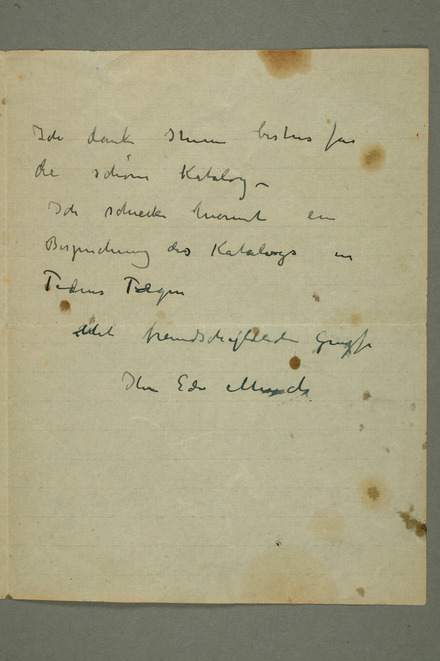 Ich danke Ihnen bestens für
die schöne Katalog –
Ich schicke hiermit ein
Besprechung des Katalogs in
Tidens Tegn
Mit freundschaftlichen Gruss
Ihr Edv Munch